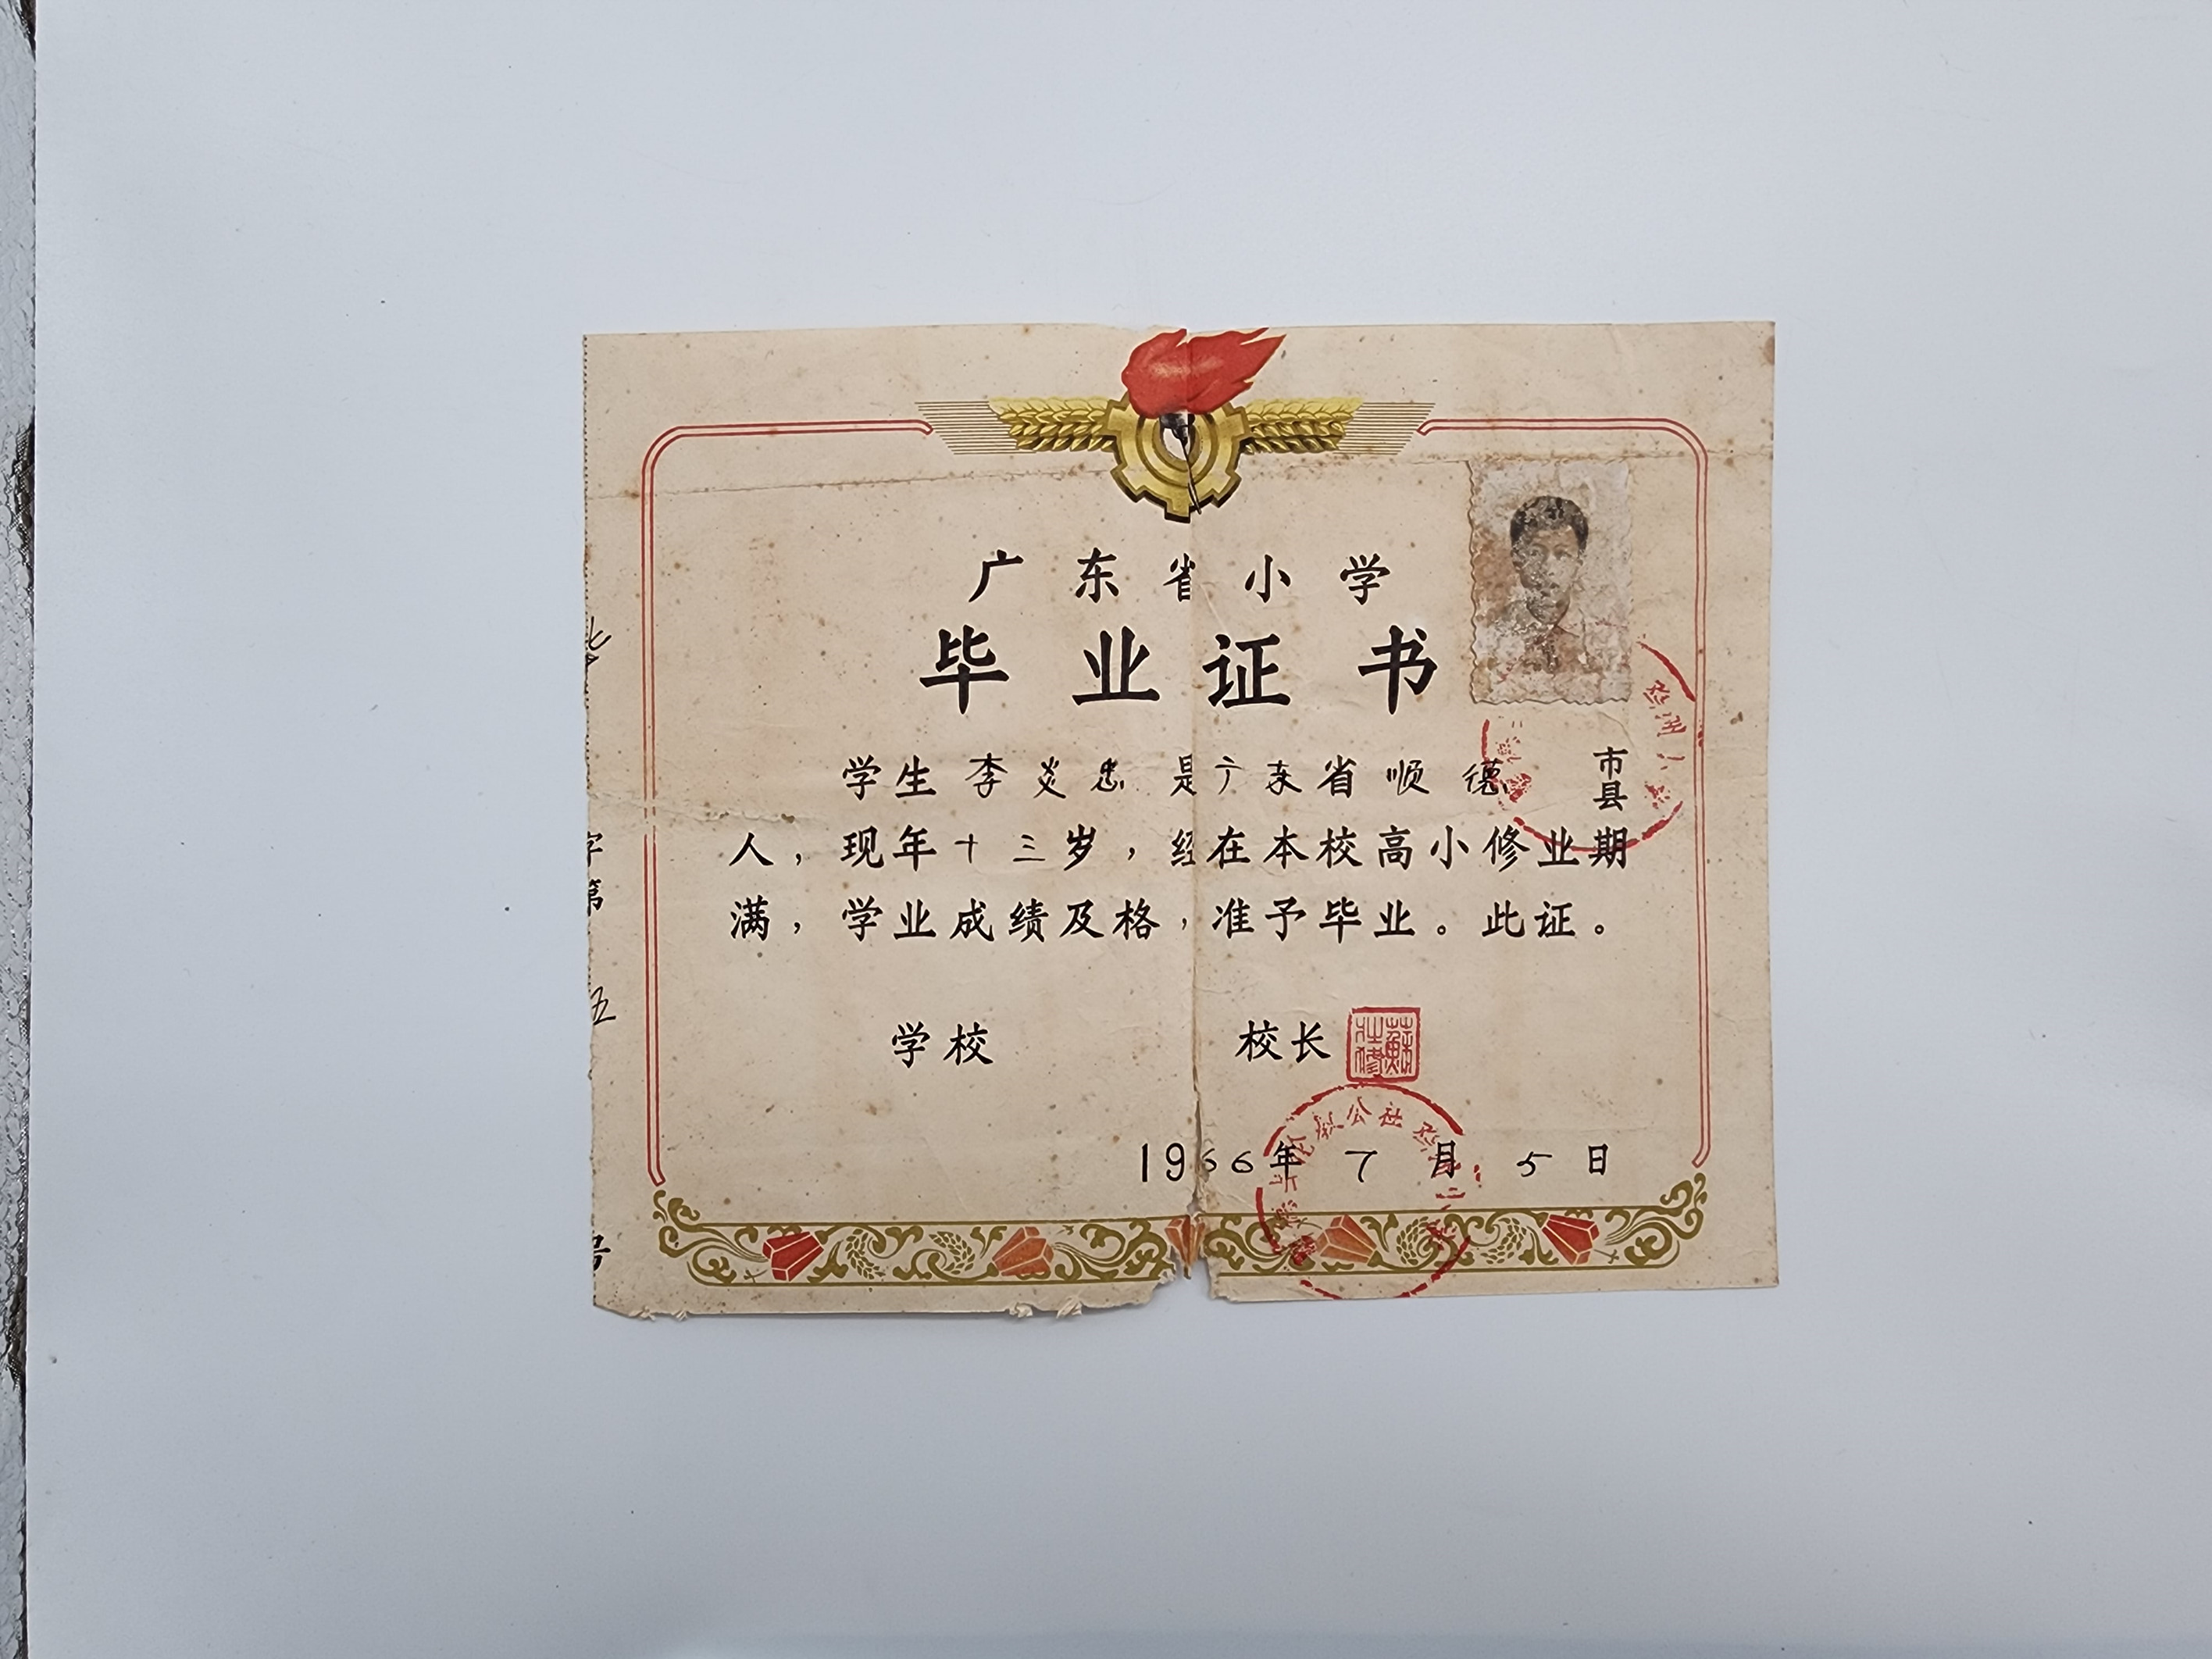 广东省小学
毕业证书
学生李炎忠是广东省顺德市县
人，现年十三岁，经在本校高小修业期
满，学业成绩及格，准予毕业。此证。
学校 校长
1966年7月5日
毕
字
第
五
号
公社